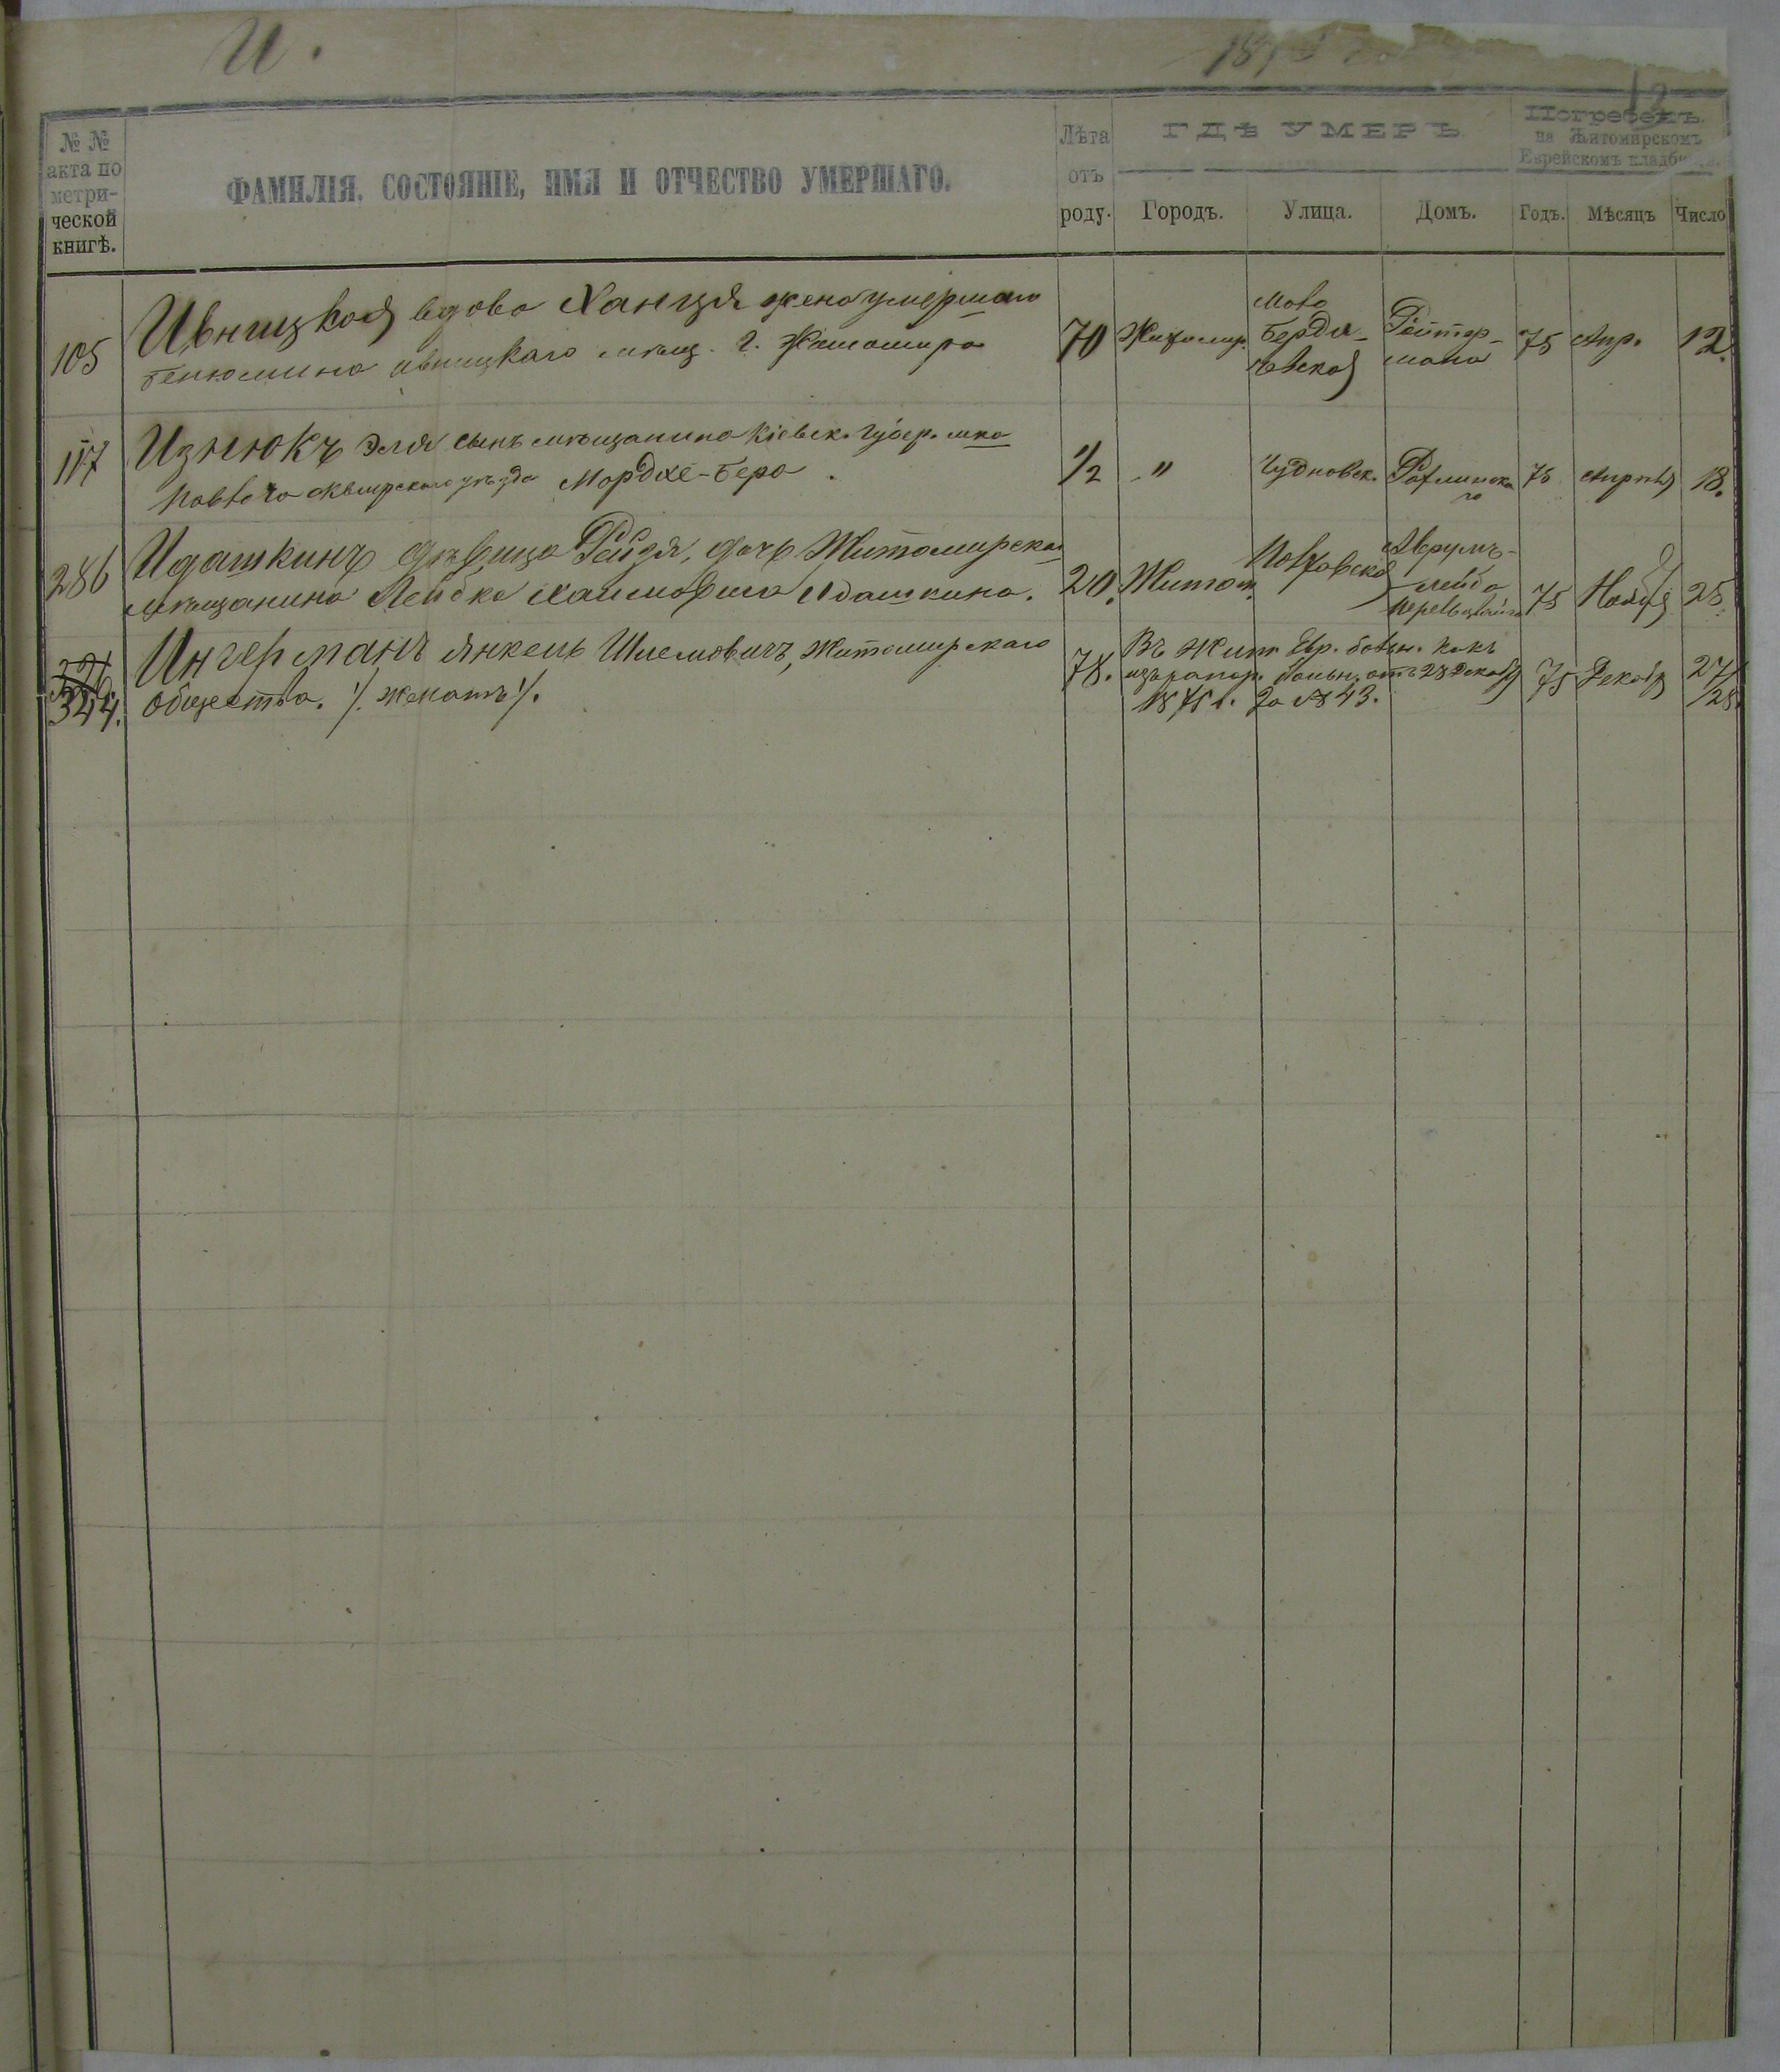 И.
187
12
№ №
акта по
метри-
ческой
книгѣ.
ФАМИЛІЯ, СОСТОЯНІЕ, ИМЯ И ОТЧЕСТВО УМЕРШАГО.
Лѣта
отъ
роду.
ГДѢ УМЕРЪ
Городъ.
Улица.
Домъ.
Погребенъ
на Житомирскомъ
Еврейскомъ кладб
Годъ.
Мѣсяцъ
Число
105
Ивницкая вдова Ханця жена умершаго
Бенюмина Ивницкаго мѣщ. г. Житомира
70
Житомир.
Мало
Берди-
чевская
Рейтер-
мана
75
Апр.
12.
117
Изнюкъ Эля сынъ мѣщанина Кіевск. Губер. мка
Сквирскаго уѣзда Мордхе-Бера.
1/2
"
Чудновск.
75
Апрѣля
18.
286
Идашкинъ дѣвица Рейзя, дочь Житомирска
мѣщанина Лейбка Хаимовича Идашкина.
20.
Житом.
Аврумъ-
Лейба
75
Ноябр
25.
344.
Ингерманъ Янкель Шлемовичъ, Житомирскаго
общества. ·/. женатъ ·/.
78.
Въ Жит Евр. больн. какъ
изъ рапор. больн. отъ 28 Декабр
1875 г. За № 43.
75
Декабр
27/
28.